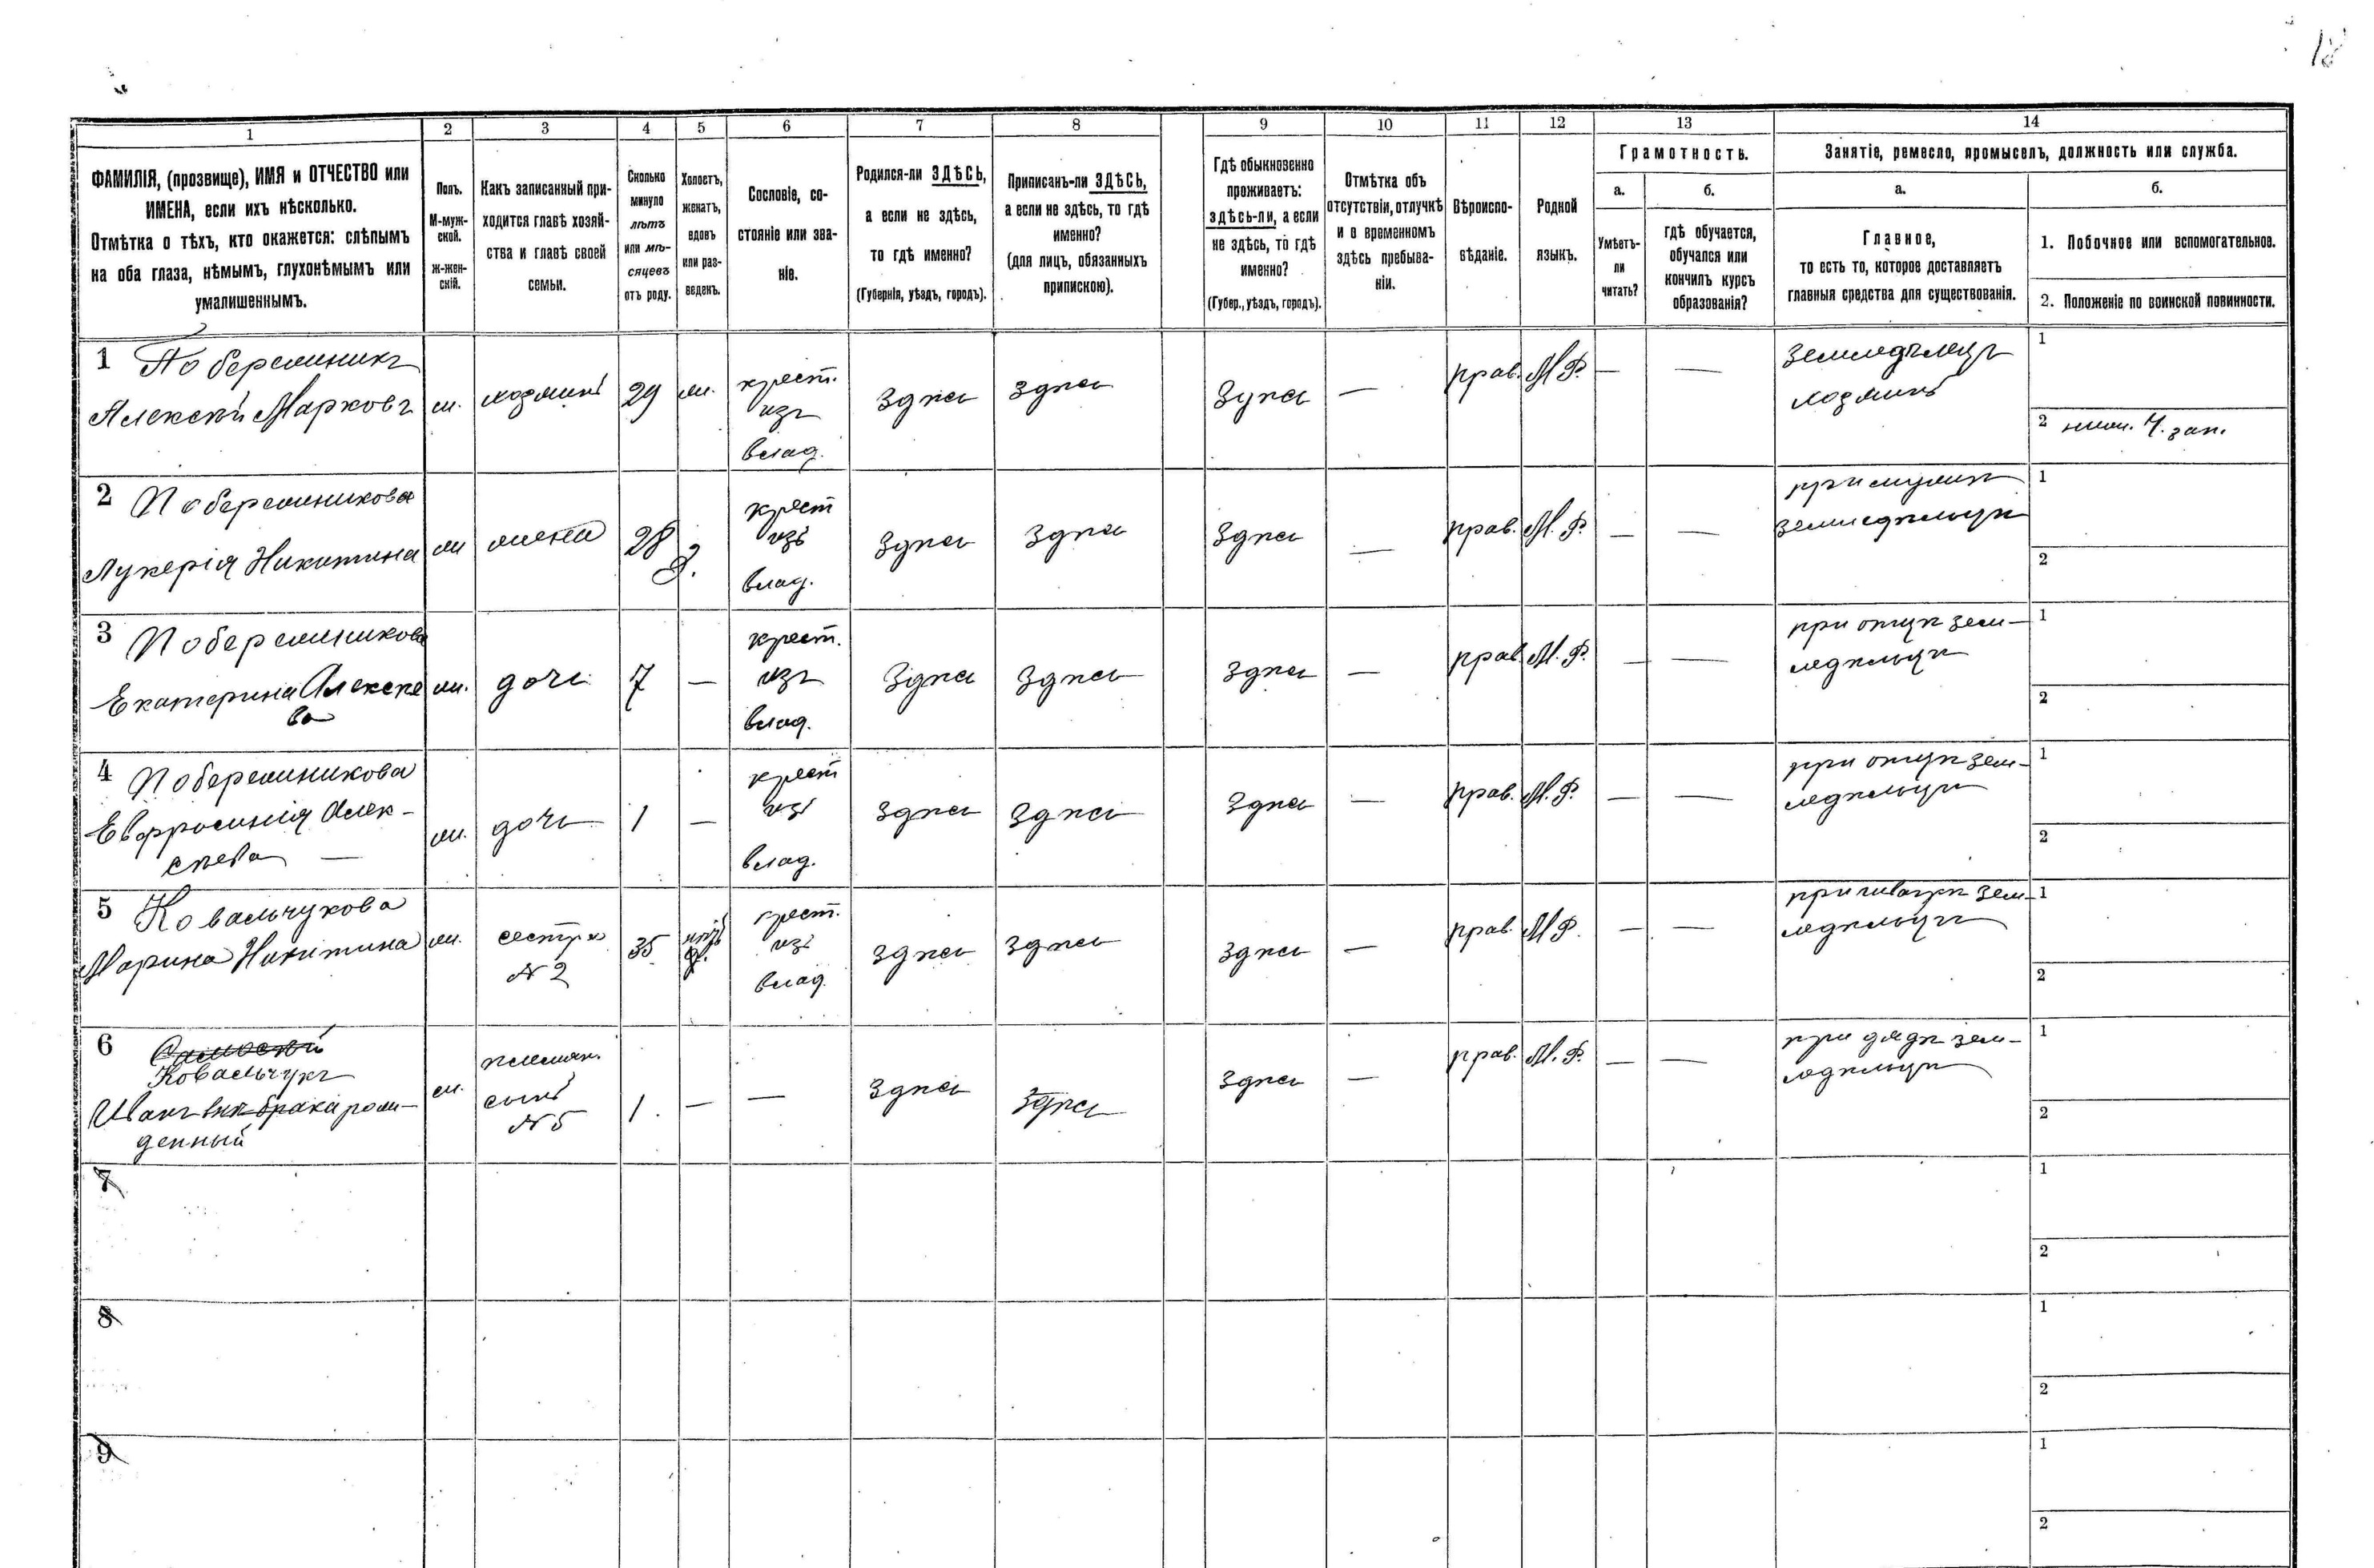 1 2 3 4 5 6 7 8 9 10 11 12 13 14
ФАМИЛІЯ, (прозвище), ИМЯ и ОТЧЕСТВО или
ИМЕНА, если ихъ нѣсколько.
Отмѣтка о тѣхъ, кто окажется: слѣпымъ
на оба глаза, нѣмымъ, глухонѣмымъ или
умалишеннымъ.
Полъ.
М-муж-
ской.
ж-жен-
скій.
Какъ записанный при-
ходится главѣ хозяй-
ства и главѣ своей
семьи.
Сколько
минуло
лѣтъ
или мѣ-
сяцевъ
отъ роду.
Холостъ,
женатъ,
вдовъ
или раз-
веденъ.
Сословіе, со-
стояніе или зва-
ніе.
Родился-ли ЗДѢСЬ,
а если не здѣсь,
то гдѣ именно?
(Губернія, уѣздъ, городъ).
Приписанъ-ли ЗДѢСЬ,
а если не здѣсь, то гдѣ
именно?
(для лицъ, обязанныхъ
припискою).
Гдѣ обыкновенно
проживаетъ:
здѣсь-ли, а если
не здѣсь, то гдѣ
именно?
(Губер., уѣздъ, городъ).
Отмѣтка объ
отсутствіи, отлучкѣ
и о временномъ
здѣсь пребыва-
ніи.
Вѣроиспо-
вѣданіе.
Родной
языкъ.
Грамотность.
а.
Умѣетъ-
ли
читать?
б.
гдѣ обучается,
обучался или
кончилъ курсъ
образованія?
Занятіе, ремесло, промыселъ, должность или служба.
а.
Главное,
то есть то, которое доставляетъ
главныя средства для существованія.
б.
1. Побочное или вспомогательное.
2. Положеніе по воинской повинности.
1 Побережникъ
Алексѣй Марковъ
м.
хозяинъ
29
ж.
крест.
изъ
влад.
Здѣсь
здѣсь
Здѣсь
—
прав.
М.Р.
—
—
земледѣлецъ
хозяинъ
1
2 зап.
2 Побережникова
Лукерія Никитина
ж
жена
28
З.
крест
изъ
влад.
Здѣсь
Здѣсь
Здѣсь
—
прав.
М.Р.
—
—
при мужѣ
земледѣльцѣ
1
2
3 Побережникова
Екатерина Алексѣе
ва
ж.
дочь
7
—
крест.
изъ
влад.
Здѣсь
Здѣсь
здѣсь
—
прав.
М.Р.
—
—
при отцѣ зем-
ледѣльцѣ
1
2
4 Побережникова
Евфросинія Алек-
сѣева —
ж.
дочь
1
—
крест
изъ
влад.
здѣсь
здѣсь
Здѣсь
—
прав.
М.Р.
—
—
при отцѣ зем-
ледѣльцѣ
1
2
5 Ковальчукова
Марина Никитина
ж.
сестра
№ 2
35
крест.
изъ
влад.
здѣсь
здѣсь
здѣсь
—
прав.
М Р.
—
—
при зем-
ледѣльцѣ
1
2
6
Ковальчукъ
Иванъ внѣ брака рож-
денный
м.
племян.
сынъ
№ 5
1.
—
—
здѣсь
здѣсь
здѣсь
—
прав.
М.Р.
—
—
при дядѣ зем-
ледѣльцѣ
1
2
7
1
2
8
1
2
9
1
2